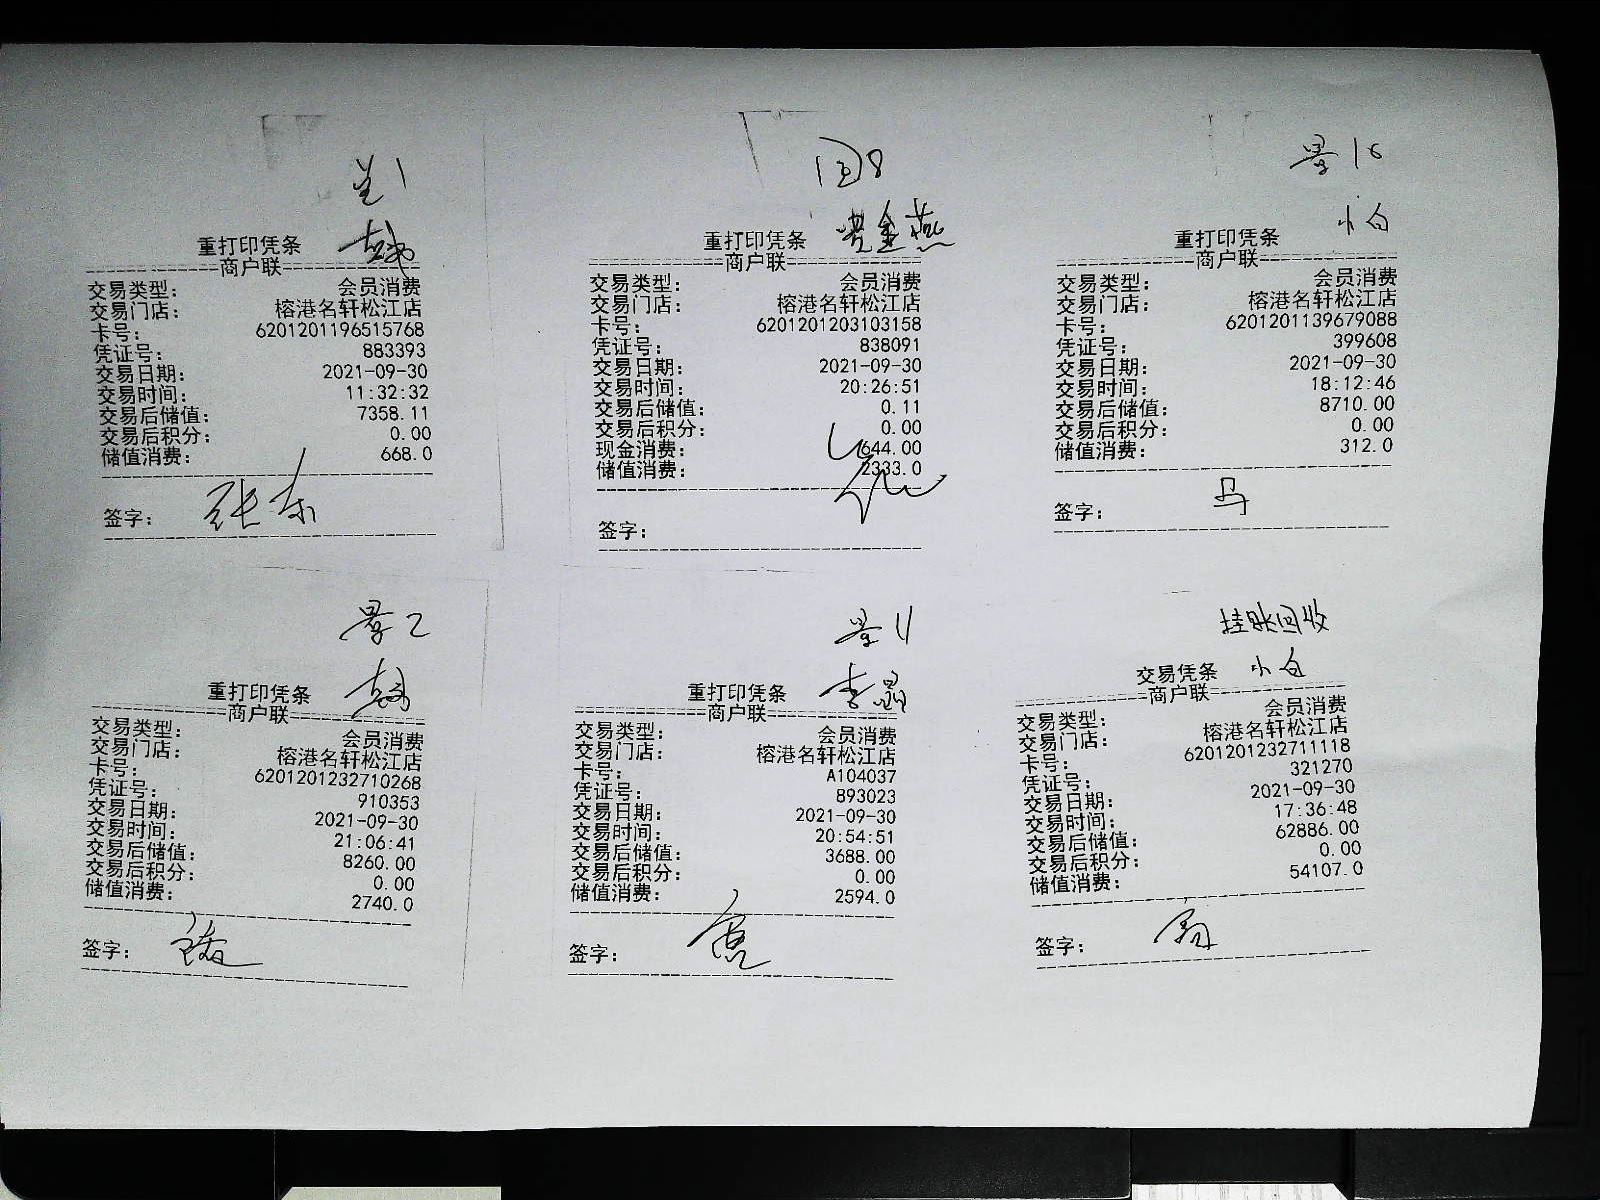 重打印凭条
商户联
交易类型： 会员消费
交易门店： 榕港名轩松江店
卡号： 6201201196515768
凭证号： 883393
交易日期： 2021-09-30
交易时间： 11:32:32
交易后储值： 7358.11
交易后积分： 0.00
储值消费： 668.0
签字： 张东
8
重打印凭条
商户联
交易类型： 会员消费
交易门店： 榕港名轩松江店
卡号： 6201201203103158
凭证号： 838091
交易日期： 2021-09-30
交易时间： 20:26:51
交易后储值： 0.11
交易后积分： 0.00
现金消费： 644.00
储值消费： 2333.0
签字：
景16
小白
重打印凭条
商户联
交易类型： 会员消费
交易门店： 榕港名轩松江店
卡号： 6201201139679088
凭证号： 399608
交易日期： 2021-09-30
交易时间： 18:12:46
交易后储值： 8710.00
交易后积分： 0.00
储值消费： 312.0
签字： 马
景2
重打印凭条
商户联
交易类型： 会员消费
交易门店： 榕港名轩松江店
卡号： 6201201232710268
凭证号： 910353
交易日期： 2021-09-30
交易时间： 21:06:41
交易后储值： 8260.00
交易后积分： 0.00
储值消费： 2740.0
签字：
景11
李晶
重打印凭条
商户联
交易类型： 会员消费
交易门店： 榕港名轩松江店
卡号： A104037
凭证号： 893023
交易日期： 2021-09-30
交易时间： 20:54:51
交易后储值： 3688.00
交易后积分： 0.00
储值消费： 2594.0
签字：
挂账回收
小白
交易凭条
商户联
交易类型： 会员消费
交易门店： 榕港名轩松江店
卡号： 6201201232711118
凭证号： 321270
交易日期： 2021-09-30
交易时间： 17:36:48
交易后储值： 62886.00
交易后积分： 0.00
储值消费： 54107.0
签字：